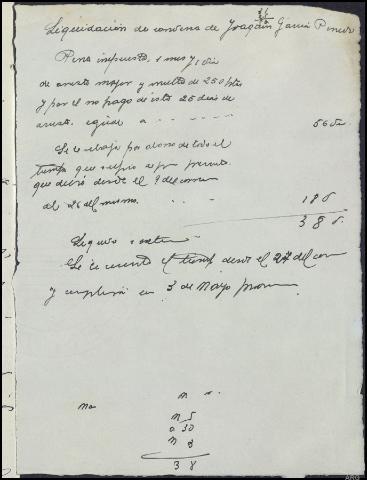 Liquidación de condena de Joaquín García Pineda
Pena impuesta, 1 mes y 1 dia
de arresto mayor y multa de 250 ptas
y por el no pago de esta 25 dias de
arresto. equivale a - - - - - 56 ds
Se le rebaja por abono de todo el
tiempo que sufrió
que desde el 9 del
al 26 del mismo. - - 18 d
38 d.
Líquido
Se le cuenta el tiempo desde el 27 del
y cumplirá en 3 de Mayo
M
ma
M 5
a 30
M 3
38
ARG